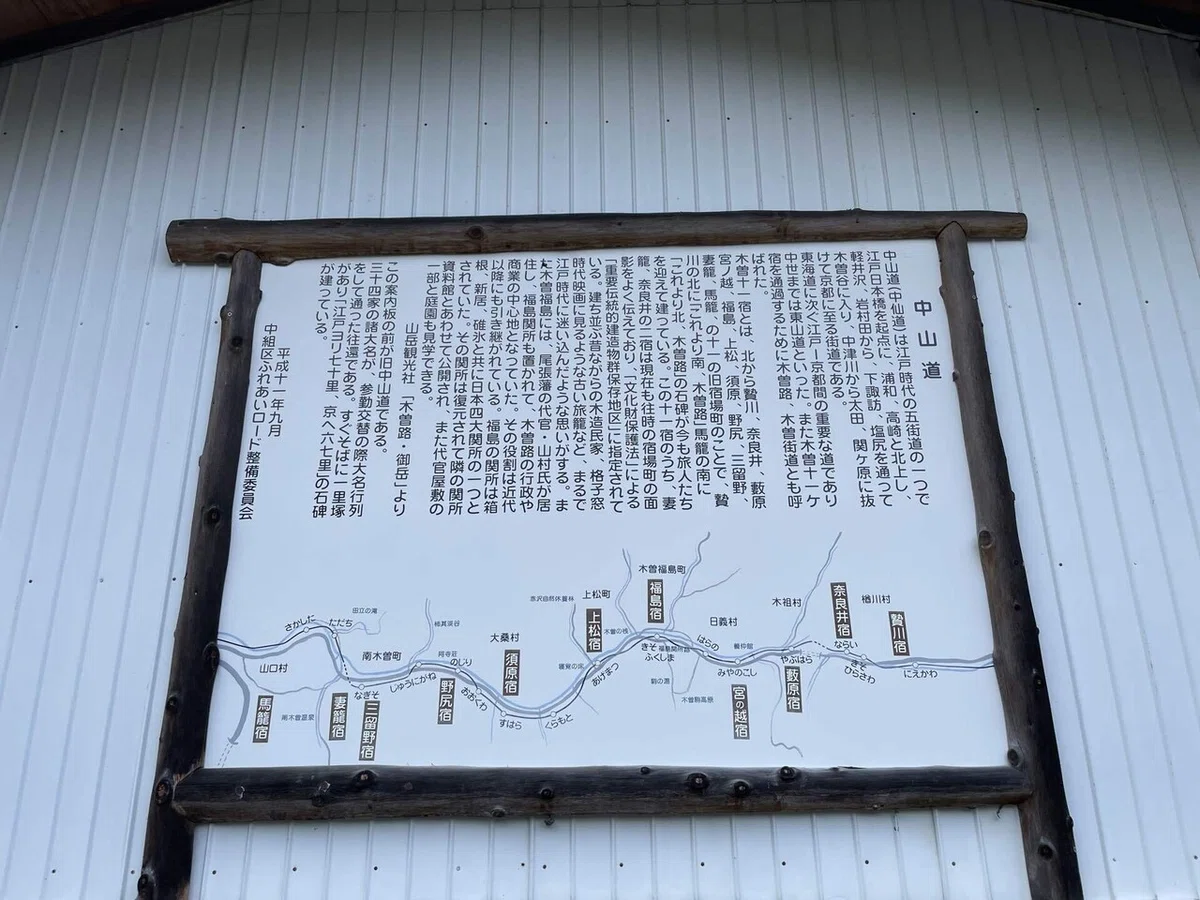 中山道
中山道(中仙道)は江戸時代の五街道の一つで
江戸日本橋を起点に、浦和、高崎と北上し、
軽井沢、岩村田から、下諏訪、塩尻を通って
木曽谷に入り、中津川から太田、関ヶ原に抜
けて京都に至る街道である。
東海道に次ぐ江戸ー京都間の重要な道であり
中世までは東山道といった。また木曽十一ケ
宿を通過するために木曽路、木曽街道とも呼
ばれた。
木曽十一宿とは、北から贄川、奈良井、藪原
宮ノ越、福島、上松、須原、野尻、三留野、
妻籠、馬籠、の十一の旧宿場町のことで、贄
川の北に「これより南 木曽路」馬籠の南に
「これより北、木曽路」の石碑が今も旅人たち
を迎えて建っている。この十一宿のうち、妻
籠、奈良井の二宿は現在も往時の宿場町の面
影をよく伝えており、「文化財保護法」による
「重要伝統的建造物群保存地区」に指定されて
いる。建ち並ぶ昔ながらの木造民家、格子窓
時代映画に見るような古い旅籠など、まるで
江戸時代に迷い込んだような思いがする。ま
た木曽福島には、尾張藩の代官・山村氏が居
住し、福島関所も置かれて、木曽路の行政や
商業の中心地となっていた。その役割は近代
以降にも引き継がれている。福島の関所は箱
根、新居、碓氷と共に日本四大関所の一つと
されていた。その関所は復元されて隣の関所
資料館とあわせて公開され、また代官屋敷の
一部と庭園も見学できる。
山岳観光社 「木曽路・御岳」より
この案内板の前が旧中山道である。
三十四家の諸大名が、参勤交替の際大名行列
をして通った往還である。すぐそばに一里塚
があり「江戸ヨリ七十里、京へ六七里」の石碑
が建っている。
平成十一年九月
中組区ふれあいロード整備委員会
木曽福島町
福島宿
上松町
上松宿
赤沢自然休養林
木曽の桟
きそふくしま
福島関所跡
日義村
はらの
義仲館
みやのこし
宮の越宿
木曽駒高原
木祖村
やぶはら
藪原宿
奈良井宿
ならい
楢川村
贄川宿
きそひらさわ
にえかわ
寝覚の床
あげまつ
くらもと
すはら
大桑村
須原宿
おおくわ
のじり
野尻宿
阿寺荘
柿其渓谷
じゅうにかね
南木曽町
なぎそ
三留野宿
妻籠宿
南木曽温泉
田立の滝
ただち
さかした
山口村
馬籠宿